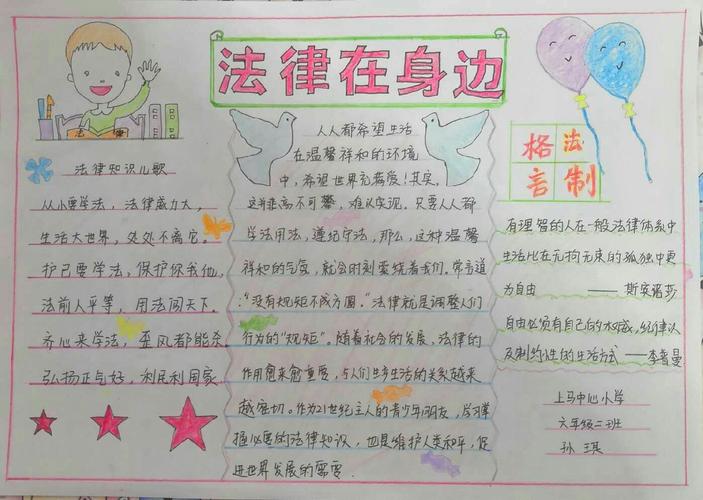 法律在身边
法律
法律知识儿歌
从小要学法，法律威力大。
生活大世界，处处不离它。
护己要学法，保护你我他，
法前人平等，用法闯天下。
齐心来学法，歪风都能杀，
弘扬正与好，利民利国家
人人都希望生活
在温馨祥和的环境
中，希望世界充满爱！其实，
这并非高不可攀，难以实现。只要人人都
学法用法，遵纪守法，那么，这种温馨
祥和的气氛，就会时刻萦绕着我们。常言道
："没有规矩不成方圆。"法律就是调整人们
行为的"规矩"。随着社会的发展，法律的
作用愈来愈重要，与人们生步生活的关系越来
越密切。作为21世纪主人的青少年朋友，学习掌
握必要的法律知识，也是维护人类和平，促
进世界发展的需要
格法
言制
有理智的人在一般法律体系中
生活比在无拘无束的孤独中更
为自由 —— 斯宾诺莎
自由必须有自己的 纪律以
及制约性的生活方式 —李普曼
上马中心小学
六年级二班
孙琪